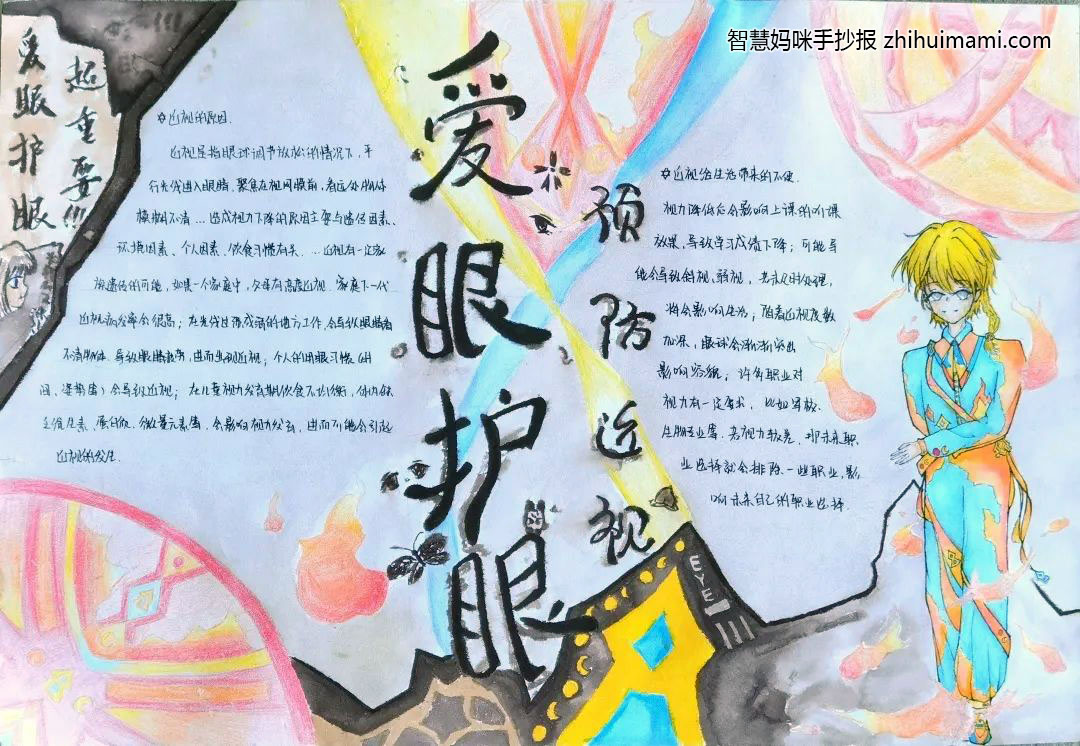 智慧妈咪手抄报 zhihuimami.com
爱眼护眼
超重要!!!
爱眼护眼
预防近视
✡近视的原因.
近视是指眼球调节放松的情况下, 平
行光线进入眼睛, 聚焦在视网膜前, 看远处物体
模糊不清...造成视力下降的原因主要与遗传因素、
环境因素、个人因素、饮食习惯有关...近视有一定家
族遗传的可能, 如果一个家庭中, 父母有高度近视. 家庭下一代
近视高发率会很高; 在光线过强或弱的地方工作, 会导致眼睛看
不清物体、导致眼睛疲劳, 进而出现近视; 个人的用眼习惯(时
间、姿势等)会导致近视; 在儿童视力发育期饮食不均衡, 体内缺
乏维生素、蛋白质、微量元素等, 会影响视力发育, 进而可能会引起
近视的发生.
✡近视给生活带来的不便.
视力降低后会影响上课的听课
效果, 导致学习成绩下降; 可能导
能会导致斜视、弱视, 若未及时处理,
将会影响生活; 随着近视度数
加深, 眼球会渐渐突出
影响容貌; 许多职业对
视力有一定要求, 比如军校、
生物专业等. 若视力较差, 那未来职
业选择就会排除一些职业, 影
响未来自己的职业选择.
EYE